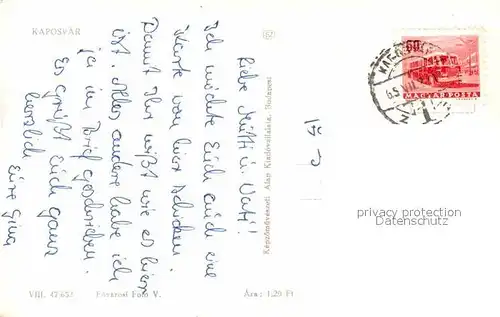 KAPOSVÁR
Liebe Mutti u. Vati!
Ich möchte Euch auch eine
Karte von hier schicken.
Damit Ihr wißt wie es hier
ist. Alles andere habe ich
ja im Brief geschrieben.
Es grüßt Euch ganz
herzlich
Eure Gina
VIII. 47/653
Fővárosi Fotó V.
Ára: 1,20 Ft
Képzőművészeti Alap Kiadóvállalata, Budapest
60
MAGYAR POSTA
privacy protection
VORDERSEITE